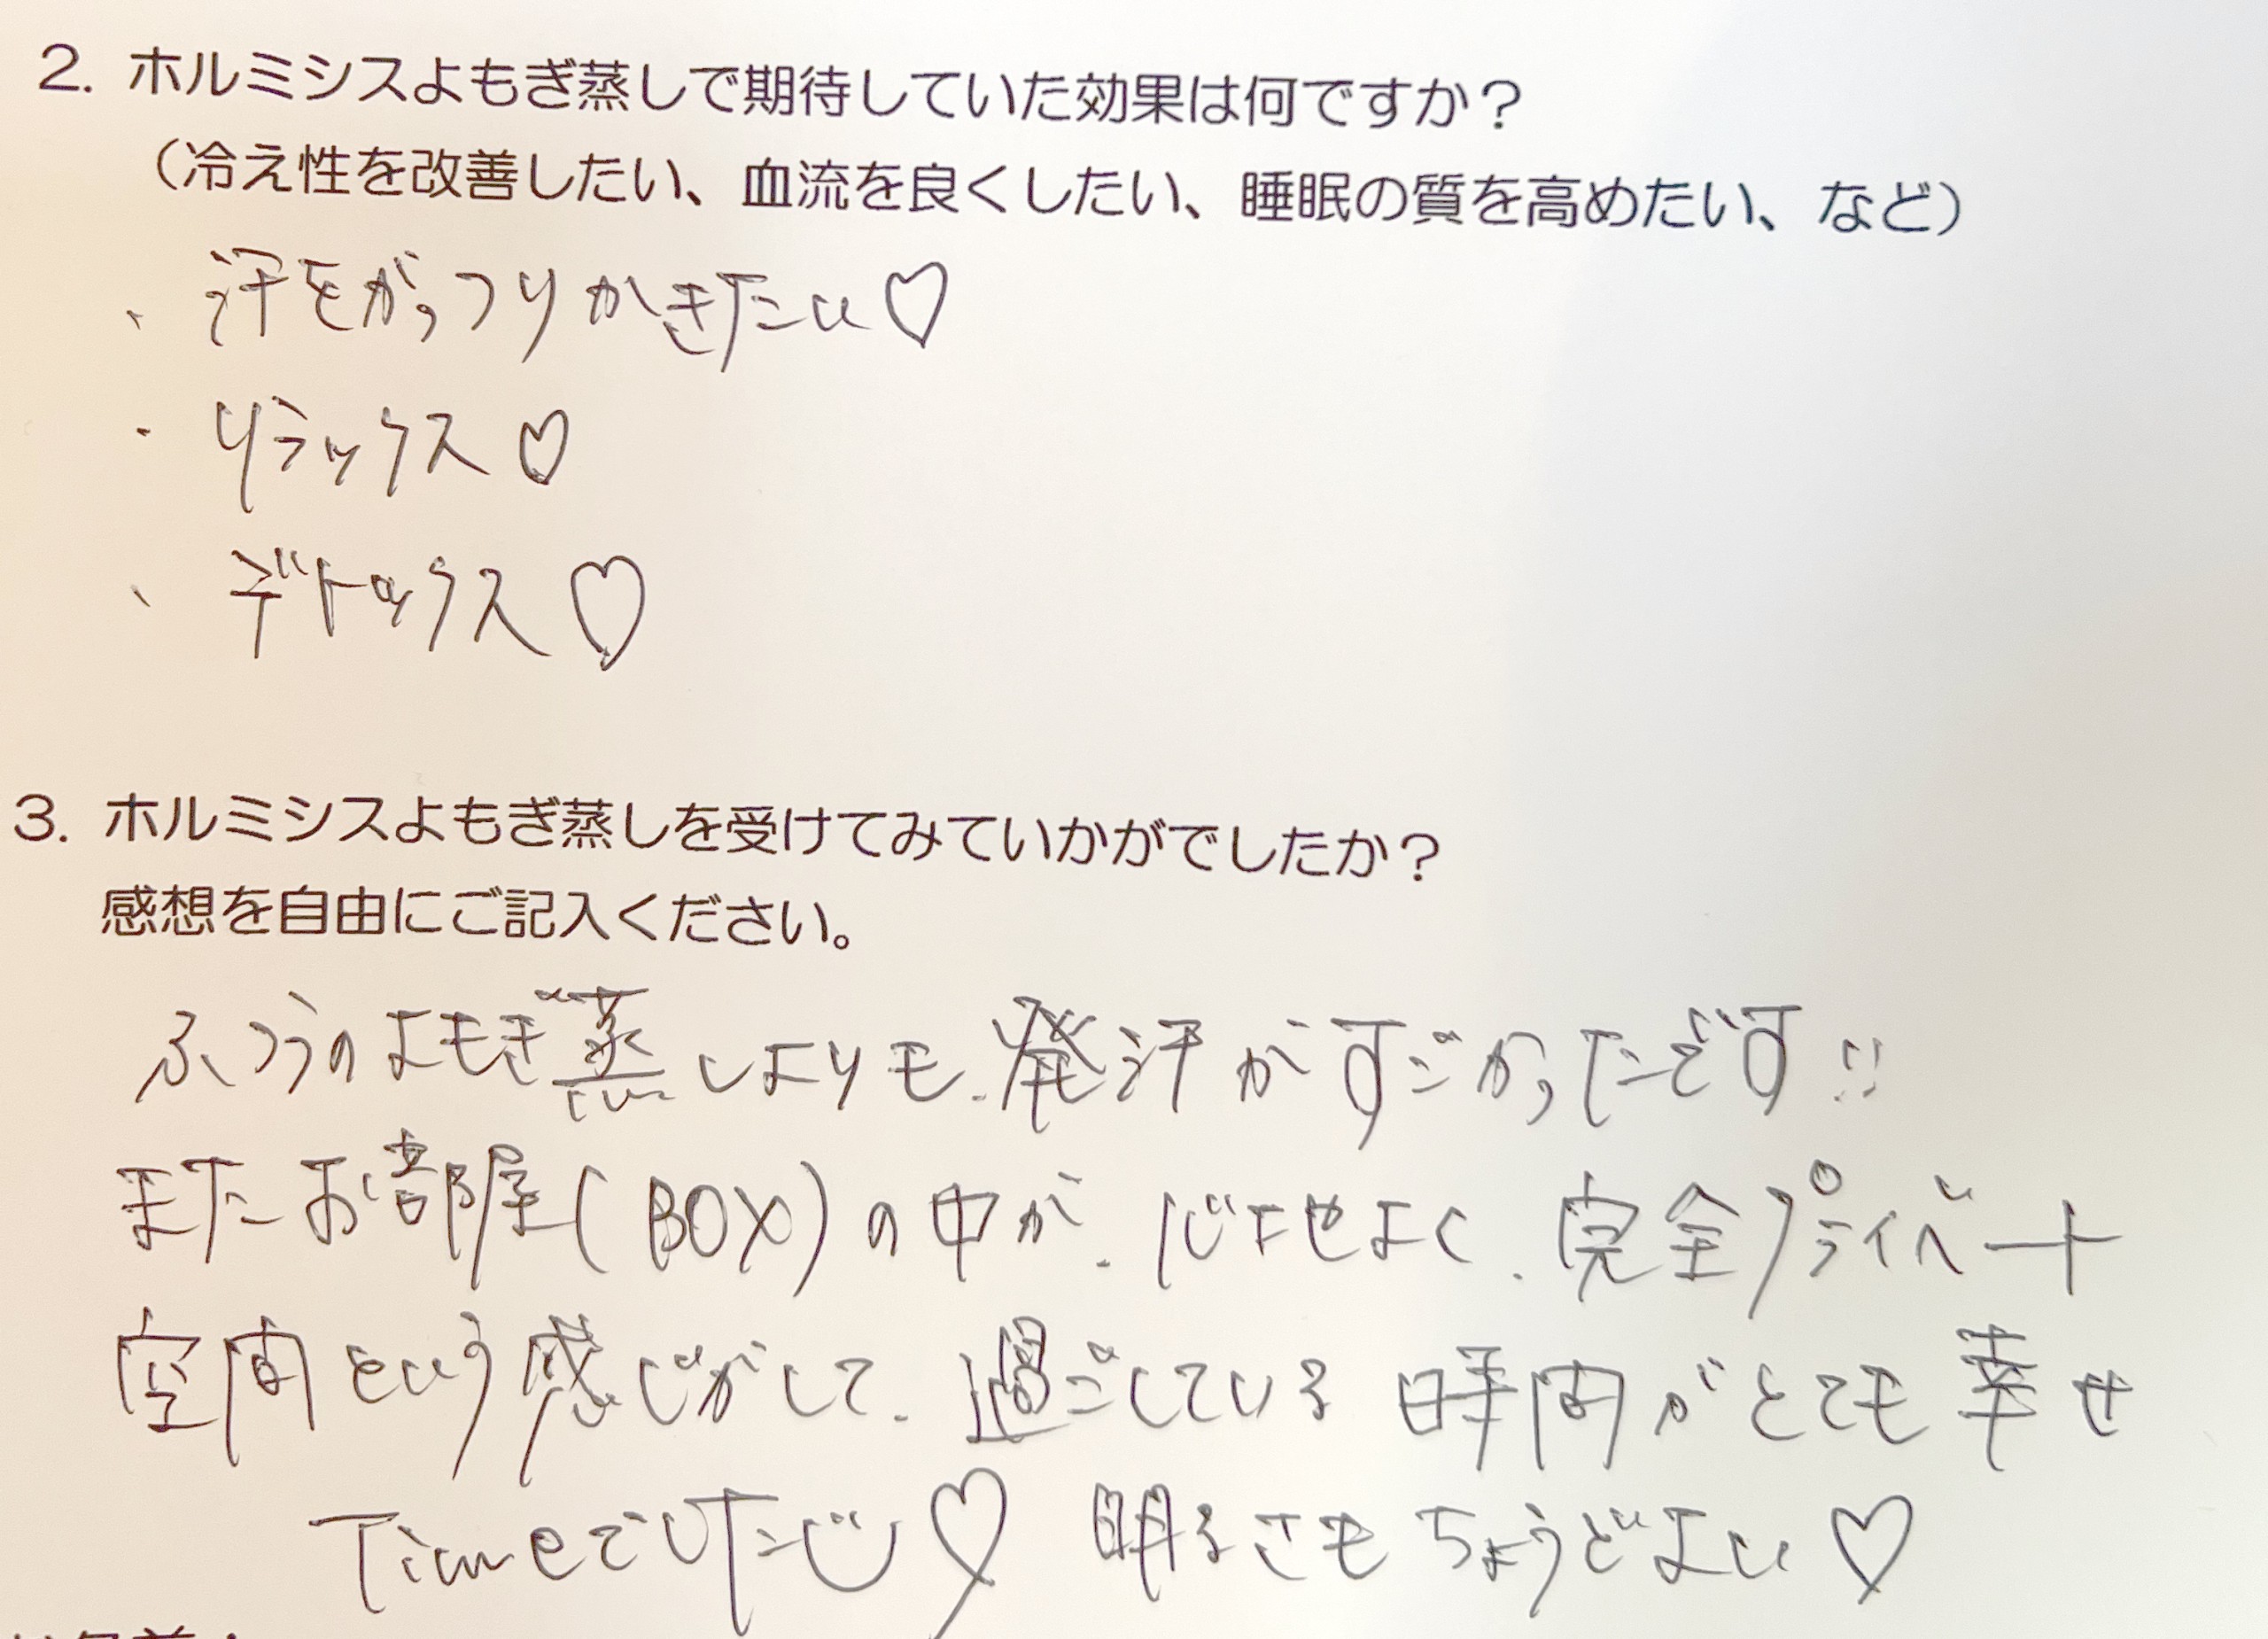 2. ホルミシスよもぎ蒸しで期待していた効果は何ですか？
（冷え性を改善したい、血流を良くしたい、睡眠の質を高めたい、など）
・汗をがっつりかきたい♡
・リラックス♡
・デトックス♡
3. ホルミシスよもぎ蒸しを受けてみていかがでしたか？
感想を自由にご記入ください。
ふつうのよもぎ蒸しよりも、発汗がすごかったです!!
またお部屋(BOX)の中が、心地よく、完全プライベート
空間という感じがして、過ごしている時間がとても幸せ
Timeでした♡ 明るさもちょうどよい♡